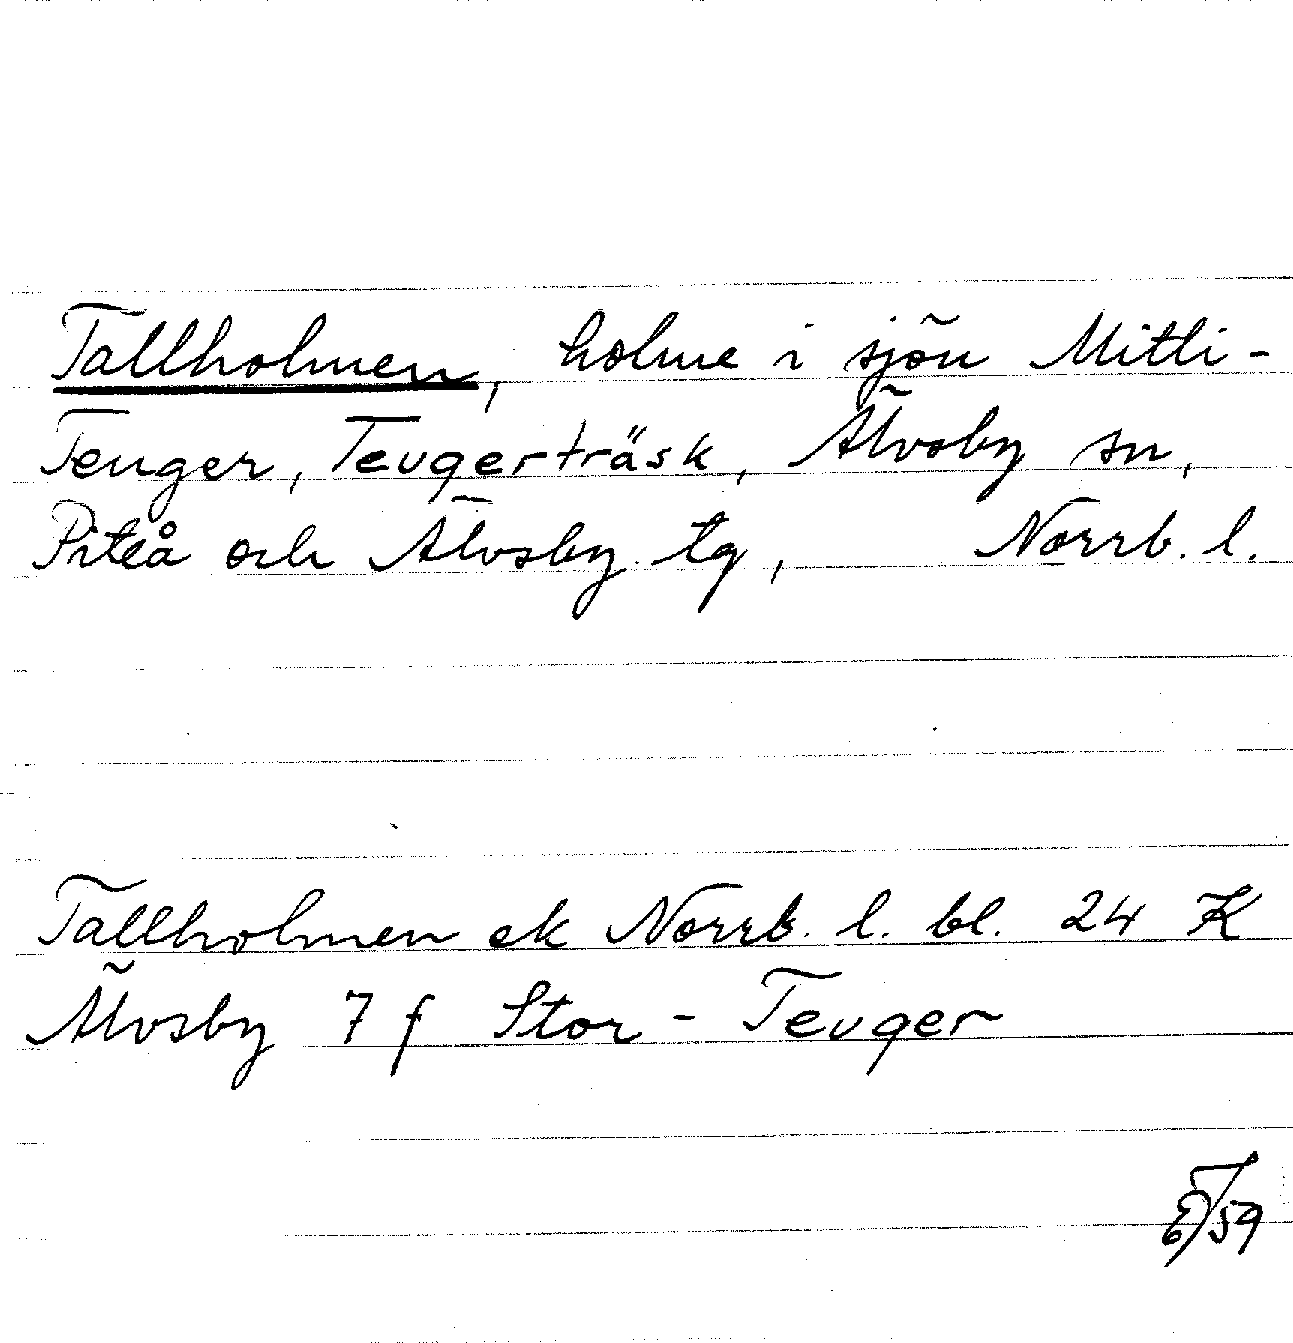 Tallholmen, holme i sjön Mitti-
Teuger, Teugerträsk, Älvsby sn,
Piteå och Älvsby tg, Norrb. l.
Tallholmen ek Norrb. l. bl. 24 K
Älvsby 7 f Stor-Teuger